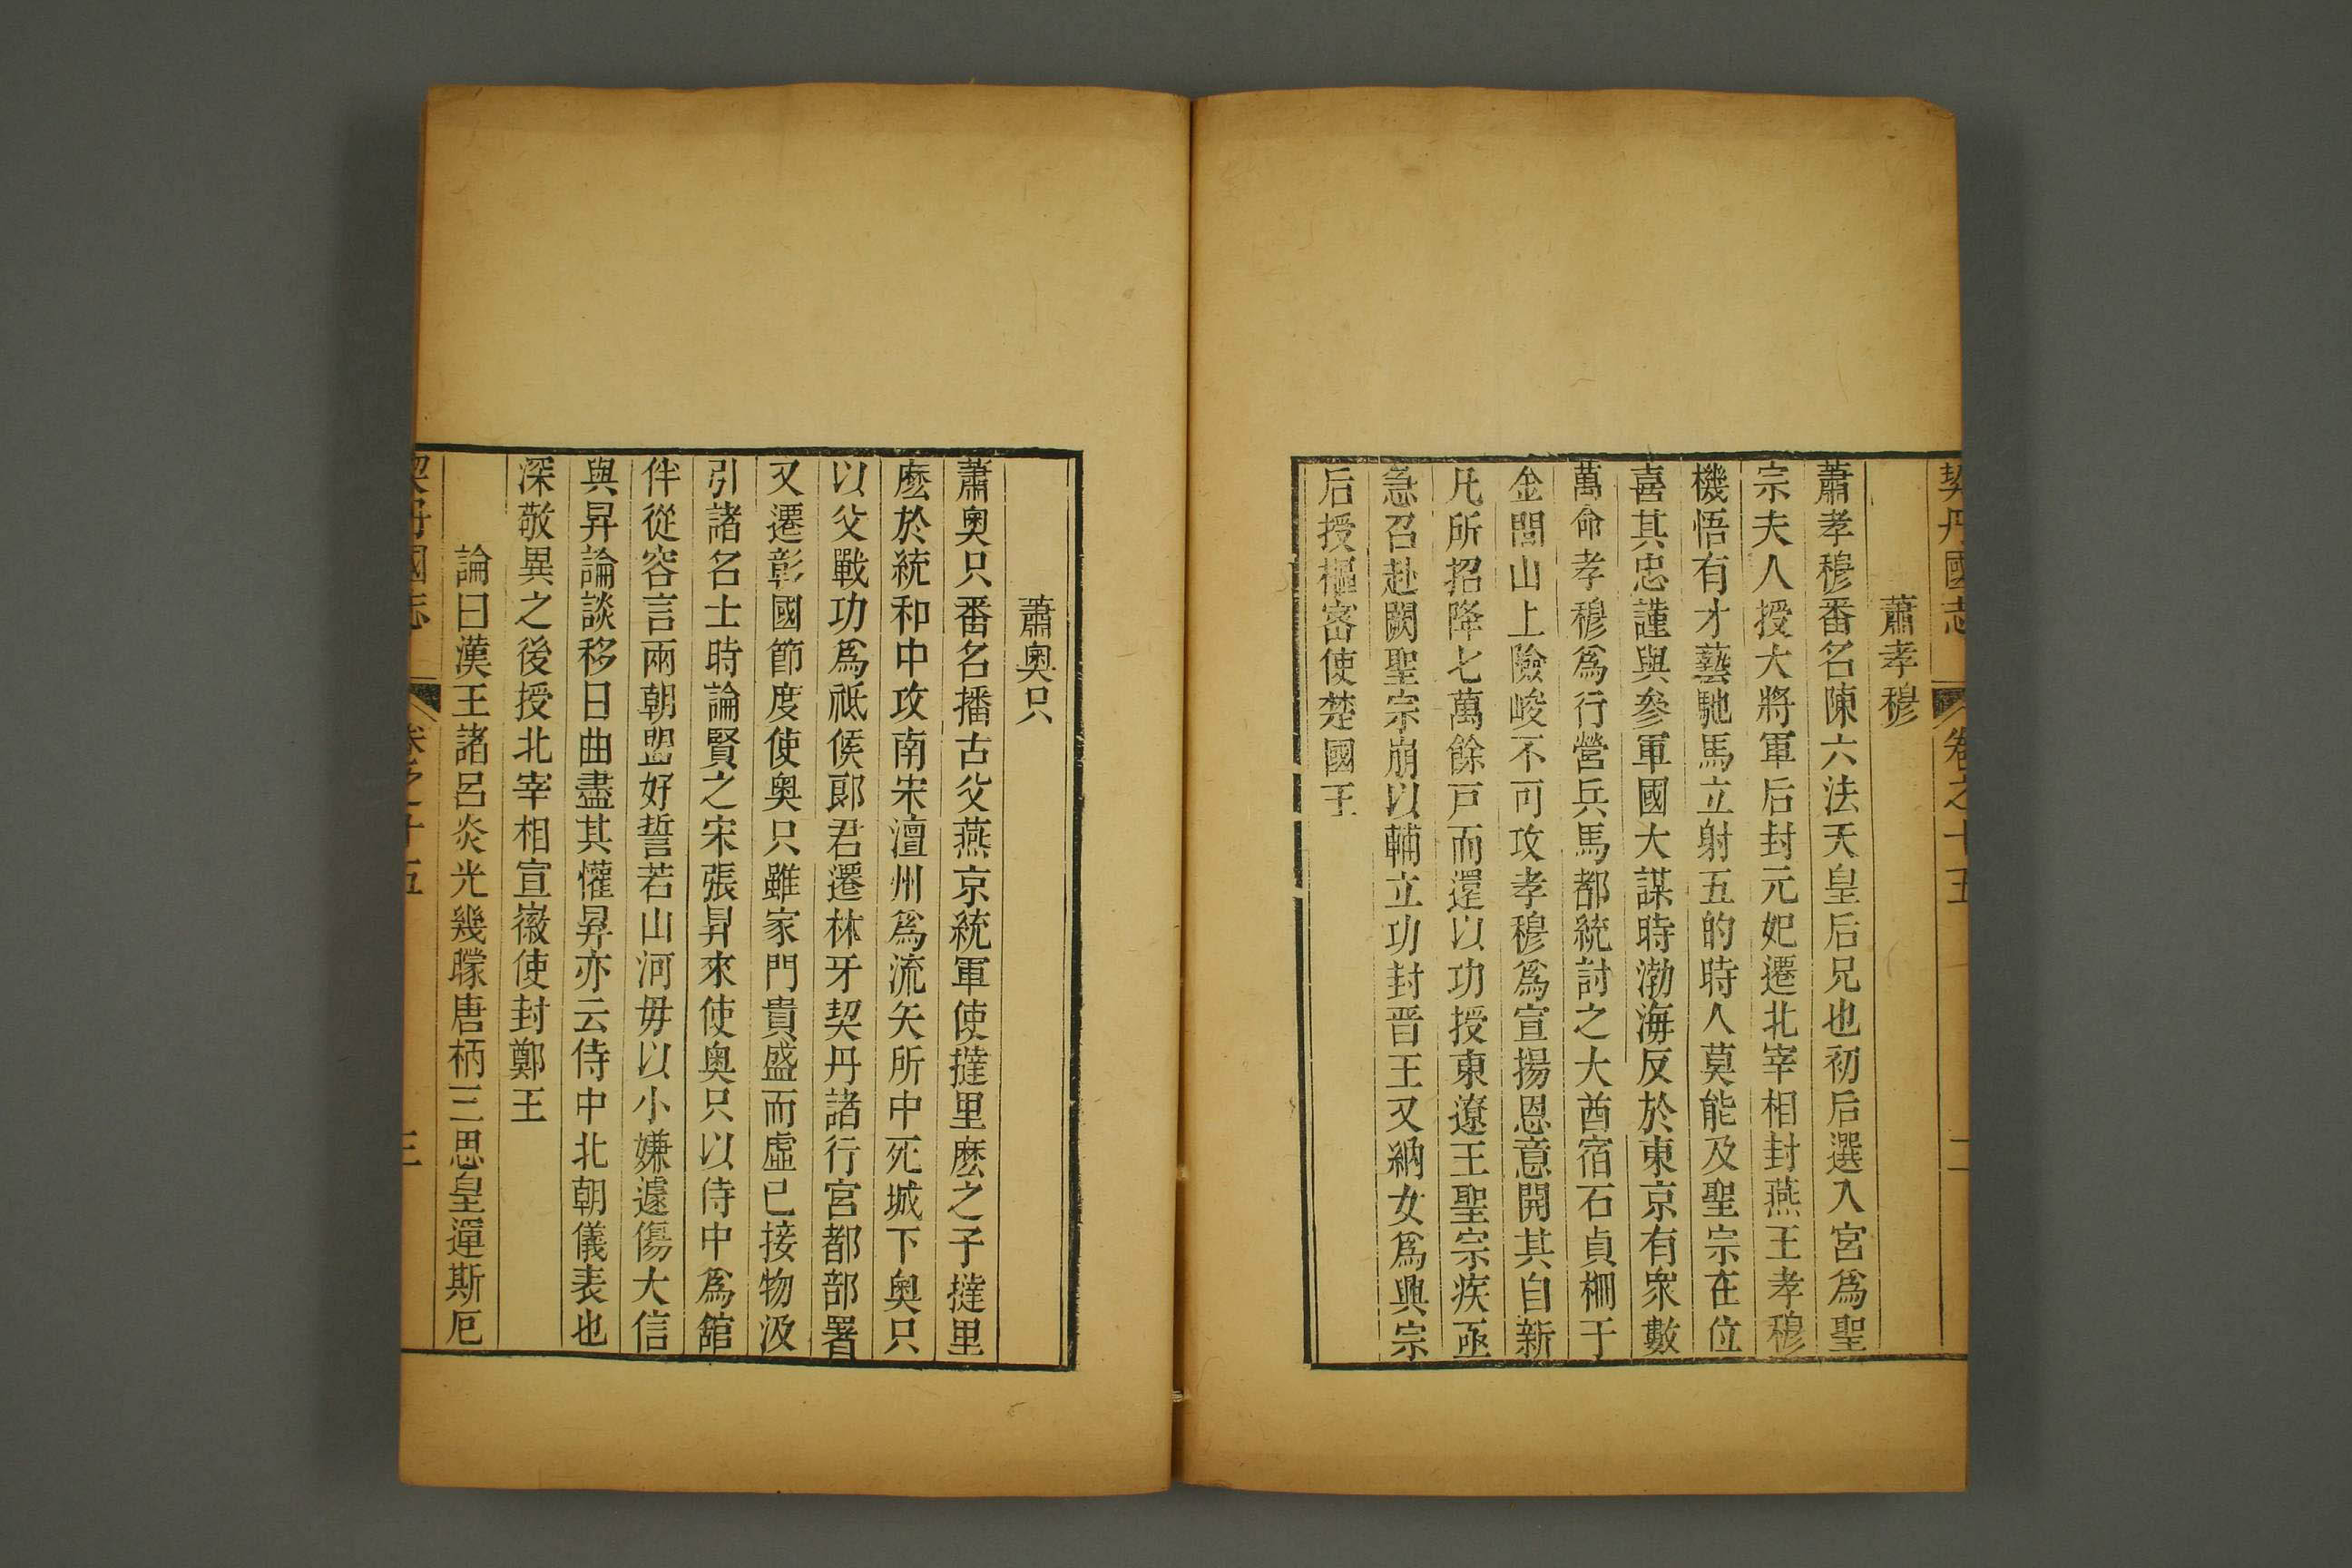 契丹國志 卷之十五 二
蕭孝穆
蕭孝穆番名陳六法天皇后兄也初后選入宮爲聖
宗夫人授大將軍后封元妃遷北宰相封燕王孝穆
機悟有才藝馳馬立射五的時人莫能及聖宗在位
喜其忠謹與參軍國大謀時渤海反於東京有衆數
萬命孝穆爲行營兵馬都統討之大酋宿石貞柵于
金閭山上險峻不可攻孝穆爲宣揚恩意開其自新
凡所招降七萬餘戸而還以功授東遼王聖宗疾亟
急召赴闕聖宗崩以輔立功封晋王又納女爲興宗
后授樞密使楚國王
蕭奧只
蕭奧只番名播古父燕京統軍使撻里麽之子撻里
麽於統和中攻南宋澶州爲流矢所中死城下奧只
以父戰功爲祗候郎君遷林牙契丹諸行宮都部署
又遷彰國節度使奧只雖家門貴盛而虛已接物汲
引諸名士時論賢之宋張昇來使奧只以侍中爲舘
伴從容言兩朝盟好誓若山河毋以小嫌遽傷大信
與昇論談移日曲盡其懽昇亦云侍中北朝儀表也
深敬異之後授北宰相宣徽使封鄭王
論曰漢王諸呂炎光幾矇唐柄三思皇運斯厄
契丹國志 卷之十五 三